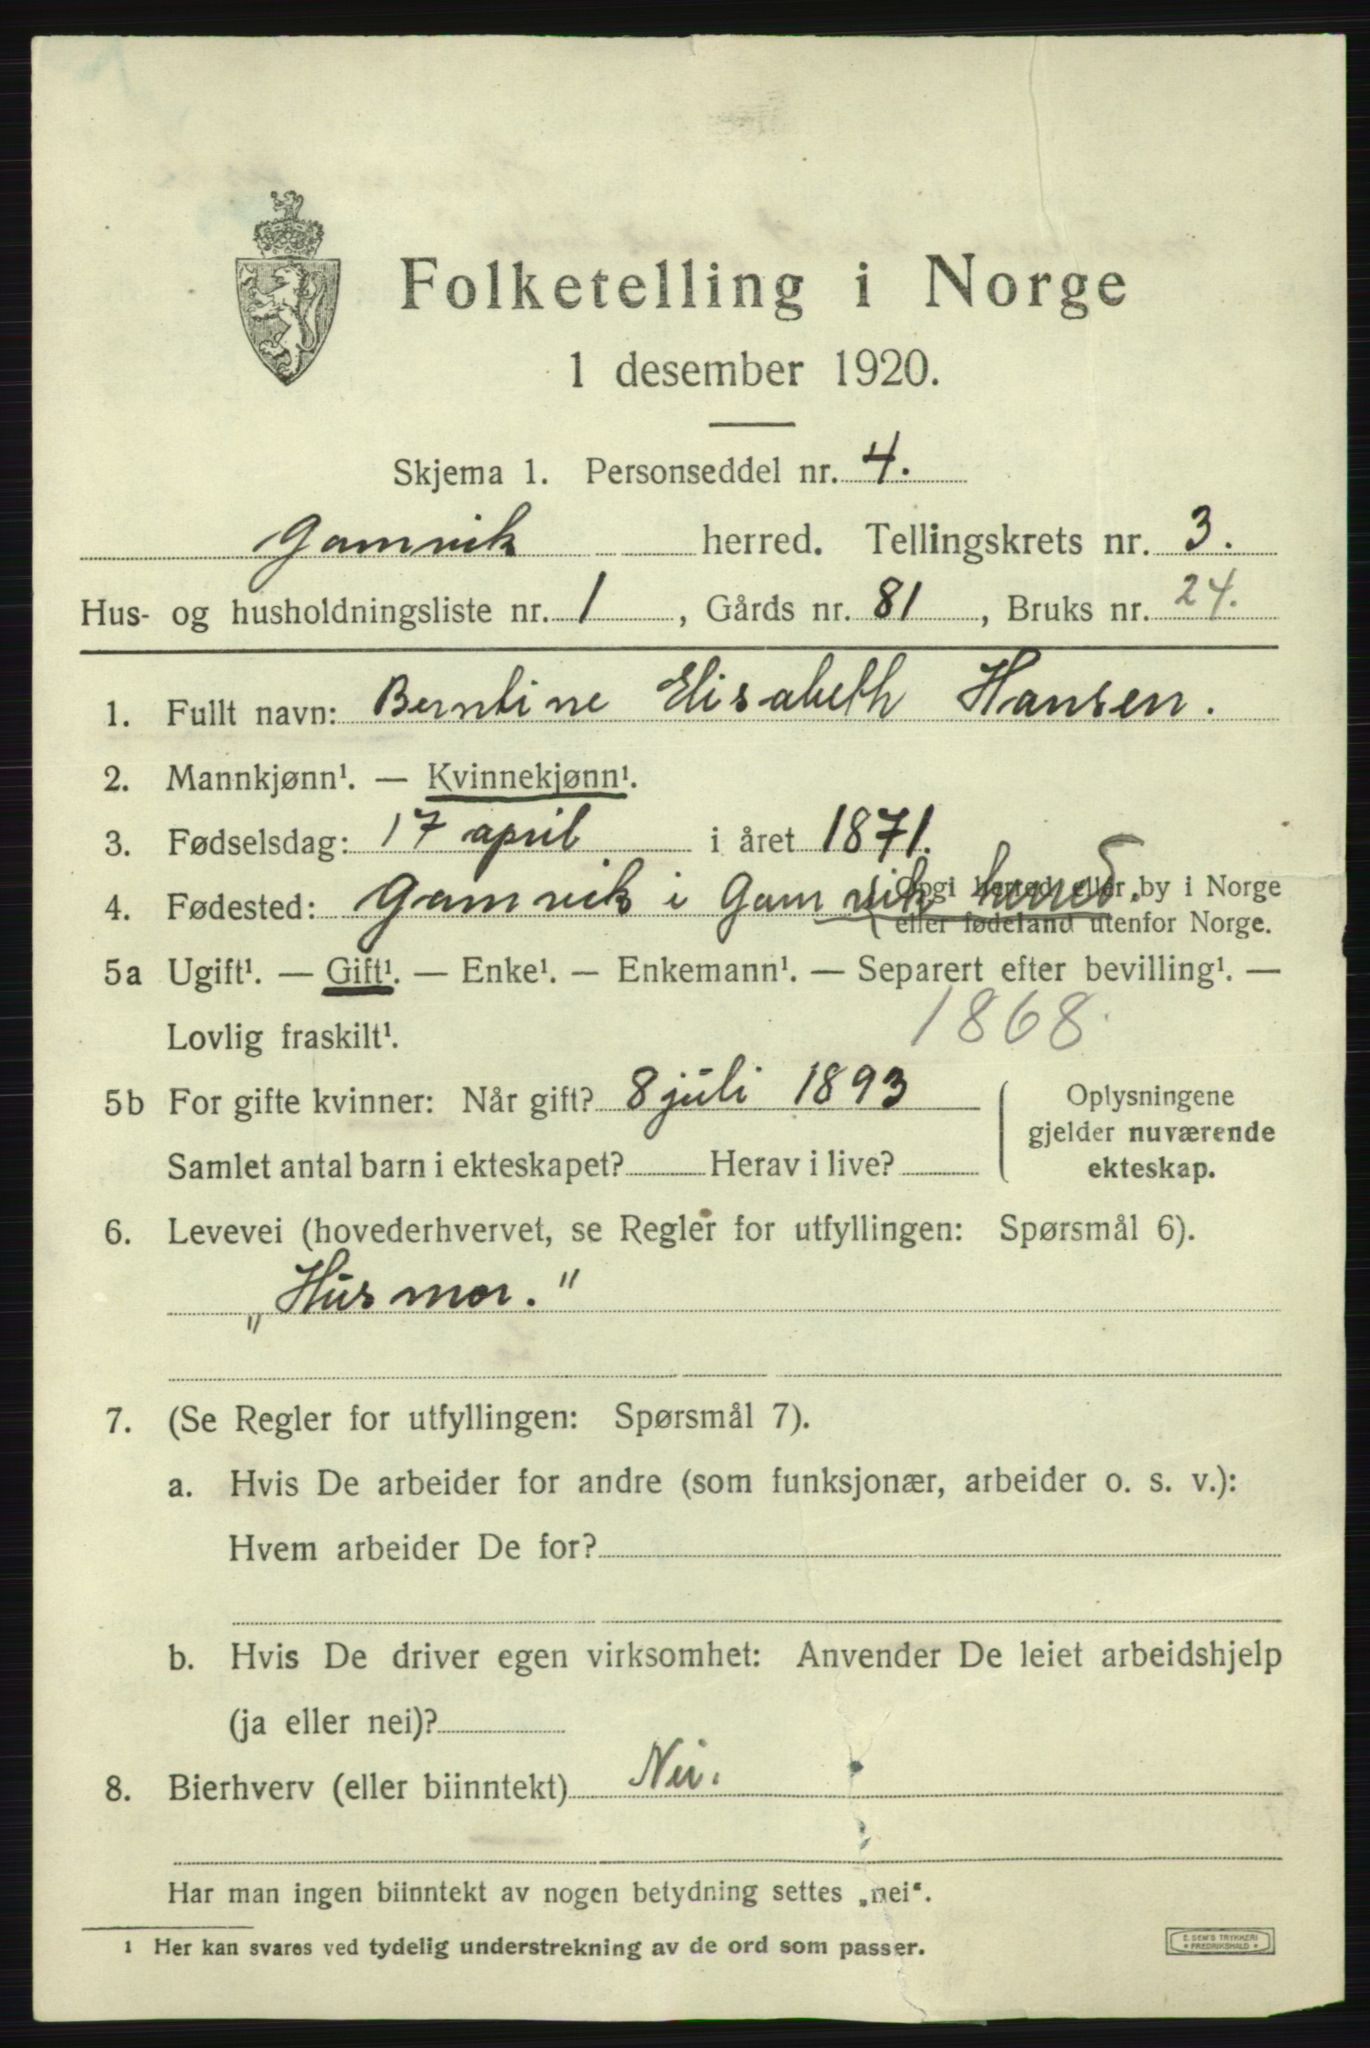 Folketelling i Norge
1 desember 1920.
Skjema 1. Personseddel nr. 4.
Gamvik herred. Tellingskrets nr. 3.
Hus- og husholdningsliste nr. 1, Gårds nr. 81, Bruks nr. 24.
1. Fullt navn: Berntine Elisabeth Hansen.
2. Mannkjønn¹. — Kvinnekjønn¹.
3. Fødselsdag: 17 april i året 1871.
4. Fødested: Gamvik i Gamvik herred. (Opgi herred eller by i Norge
eller fødeland utenfor Norge.
5a Ugift¹. — Gift¹. — Enke¹. — Enkemann¹. — Separert efter bevilling¹. —
Lovlig fraskilt¹. 1868.
5b For gifte kvinner: Når gift? 8 juli 1893
Samlet antal barn i ekteskapet? Herav i live?
Oplysningene
gjelder nuværende
ekteskap.
6. Levevei (hovederhvervet, se Regler for utfyllingen: Spørsmål 6).
„Husmor.”
7. (Se Regler for utfyllingen: Spørsmål 7).
a. Hvis De arbeider for andre (som funksjonær, arbeider o. s. v.):
Hvem arbeider De for?
b. Hvis De driver egen virksomhet: Anvender De leiet arbeidshjelp
(ja eller nei)?
8. Bierhverv (eller biinntekt) Nei.
Har man ingen biinntekt av nogen betydning settes „nei“.
¹ Her kan svares ved tydelig understrekning av de ord som passer.
E. SEM'S TRYKKERI
* FREDRIKSHALD *